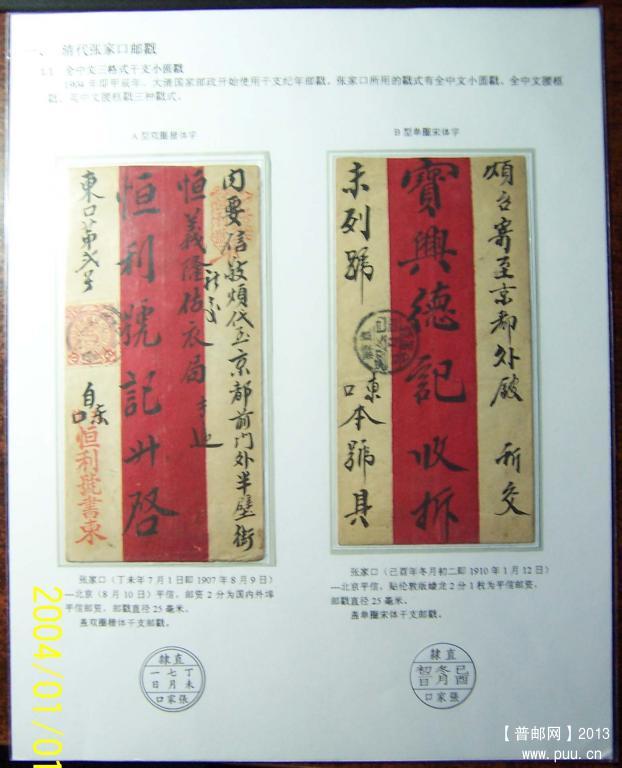 一、 清代张家口邮戳
1.1 全中文三格式干支小圆戳
1904年即甲辰年，大清国家邮政开始使用干支纪年邮戳。张家口所用的戳式有全中文小圆戳、全中文腰框
戳、英中文腰框戳三种戳式。
A型双圈楷体字
B型单圈宋体字
内要信敬烦代至京都前门外半壁街
恒義隆估衣局
恒利號記
啓
東口第弍号
自東口
恒利號書柬
煩台寄至京都外 所交
寶興德記收拆
未列號
東口本號具
张家口（丁未年7月1日即1907年8月9日）
—北京（8月10日）平信，邮资2分为国内外埠
平信邮资。邮戳直径25毫米。
盖双圈楷体干支邮戳。
张家口（己酉年冬月初二即1910年1月12日）
—北京平信，贴伦敦版蟠龙2分1枚为平信邮资。
邮戳直径25毫米。
盖单圈宋体干支邮戳。
直隸
丁未
七月
一日
張家口
直隸
己酉
冬月
初二日
張家口
2004/01/01
【普邮网】2013
www.puu.cn